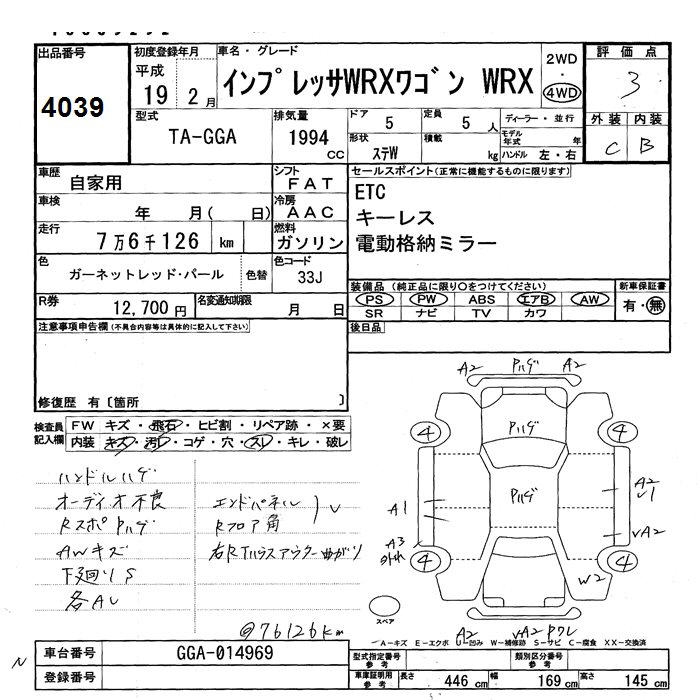 出品番号
4039
初度登録年月
平成
19 2 月
車名・グレード
インプレッサWRXワゴン WRX
2WD
・
4WD
評価点
3
外装 内装
C B
型式
TA-GGA
排気量
1994
cc
ドア
5
定員
5 人
ディーラー・並行
モデル
年式 年
形状
ステW
積載
kg
ハンドル 左・右
車歴
自家用
シフト
FAT
車検
年 月( 日)
冷房
AAC
走行
7万6千126 km
燃料
ガソリン
色
ガーネットレッド・パール
色替
色コード
33J
R券
12,700円
名変通知期限
月 日
セールスポイント(正常に機能するものに限ります)
ETC
キーレス
電動格納ミラー
装備品(純正品に限り○をつけてください)
PS PW ABS エアB AW
SR ナビ TV カワ
新車保証書
有・無
後日品
注意事項申告欄(不具合内容等は具体的に記入して下さい)
修復歴 有〔箇所 〕
検査員
記入欄
FW キズ・飛石・ヒビ割・リペア跡・×要
内装 キズ・汚レ・コゲ・穴・スリ・キレ・破レ
ハンドルハゲ
オーディオ不良
RスポPハゲ
AWキズ
下廻りS
各AU
エンドパネル
Rフロア角
U
右RTハウスアウター曲がり
@76126km
A2 Pハゲ A2
Pハゲ
4 4
Pハゲ
A1
A2
U1
A3
UA2
4 4
W2
スペア
A2 UA2 Pワレ
A-キズ E-エクボ U-凹み W-補修跡 S-サビ C-腐食 XX-交換済
車台番号
GGA-014969
登録番号
N
型式指定番号
参考
類別区分番号
参考
車庫証明用
参考
長さ 446 cm 幅 169 cm 高さ 145 cm